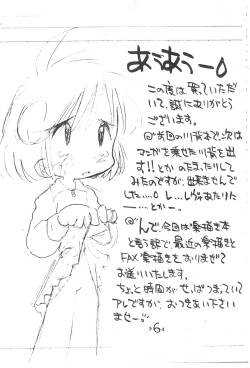 あうあうー
この度は買っていただい
て、誠にありがとう
ございます。
前回の川背本で、次は
マンガを乗せた川背を出
す!!とかのたまったりして
みたのですが、出来ませんで
した…。し…しくみあたりん
ー…とかー。
んで、今回は楽描き本
と言う訳で、最近の楽描きと
FAX楽描きをおりまぜて
お送りいたします。
ちょっと時間がせっぱつまっていて
アレですが、おつきあい下さい
ませー。
6